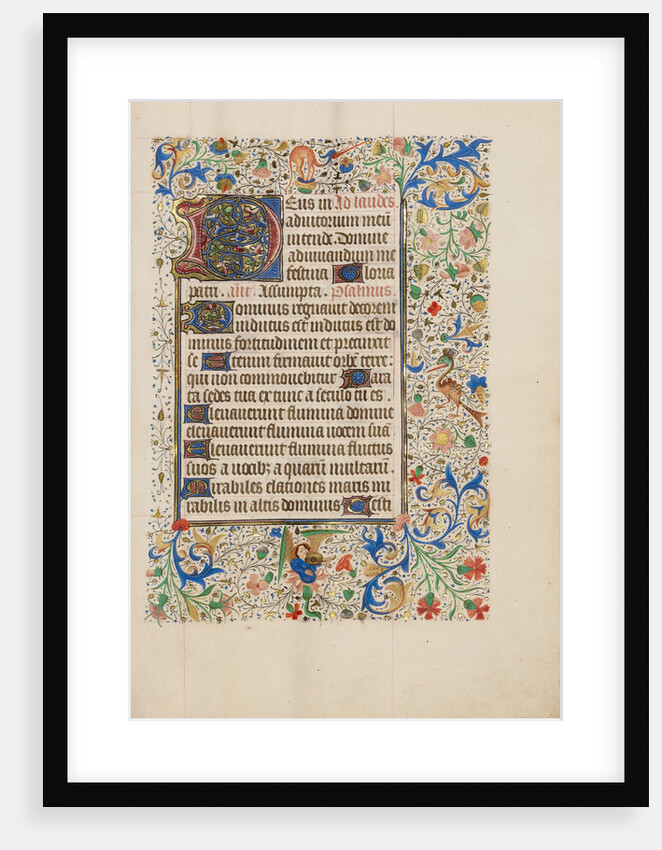 Deus in Ad laudes
adiutorium meū
intende. Domine
adiuuandum me
festina Gloria
patri. añt. Assumpta. Psalmus.
Dominus regnauit decorem
indutus est indutus est do
minus fortitudinem et precinxit
se Etenim firmauit orbē terre:
qui non commouebitur Para
ta sedes tua ex tunc a seculo tu es.
Eleuauerunt flumina domine
eleuauerunt flumina uocem suā
Eleuauerunt flumina fluctus
suos a uocibȝ aquarū multarū.
Mirabiles elationes maris mi
rabilis in altis dominus Testi